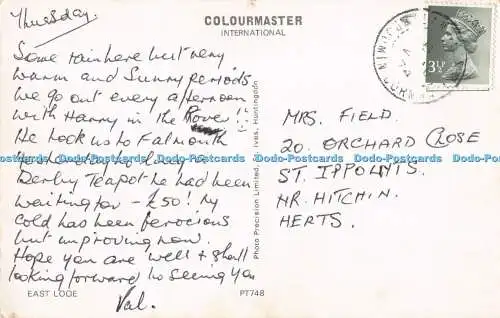 Thursday.
COLOURMASTER
INTERNATIONAL
Some rain here but very
warm and Sunny periods
We go out every afternoon
with Harry in the Rover!!
He took us to Falmouth
yesterday to buy a
Derby Teapot he had been
waiting for - £50! My
cold has been ferocious
but improving now.
Hope you are well & shall
looking forward to seeing you
Val.
EAST LOOE
PT748
Photo Precision Limited, St. Ives, Huntingdon
3½
MRS. FIELD.
20. ORCHARD CLOSE
ST. IPPOLYTS.
NR. HITCHIN.
HERTS.
Dodo-Postcards Dodo-Postcards Dodo-Postcards Dodo-Postcards Dodo-Postcards